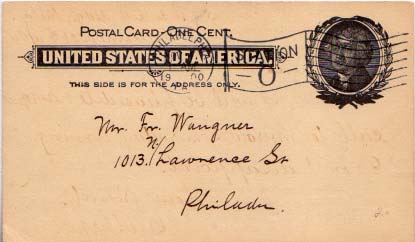 POSTAL CARD-ONE CENT.
UNITED STATES OF AMERICA.
THIS SIDE IS FOR THE ADDRESS ONLY.
Mr. Fr. Wangner
1013. N Lawrence St
Philada.